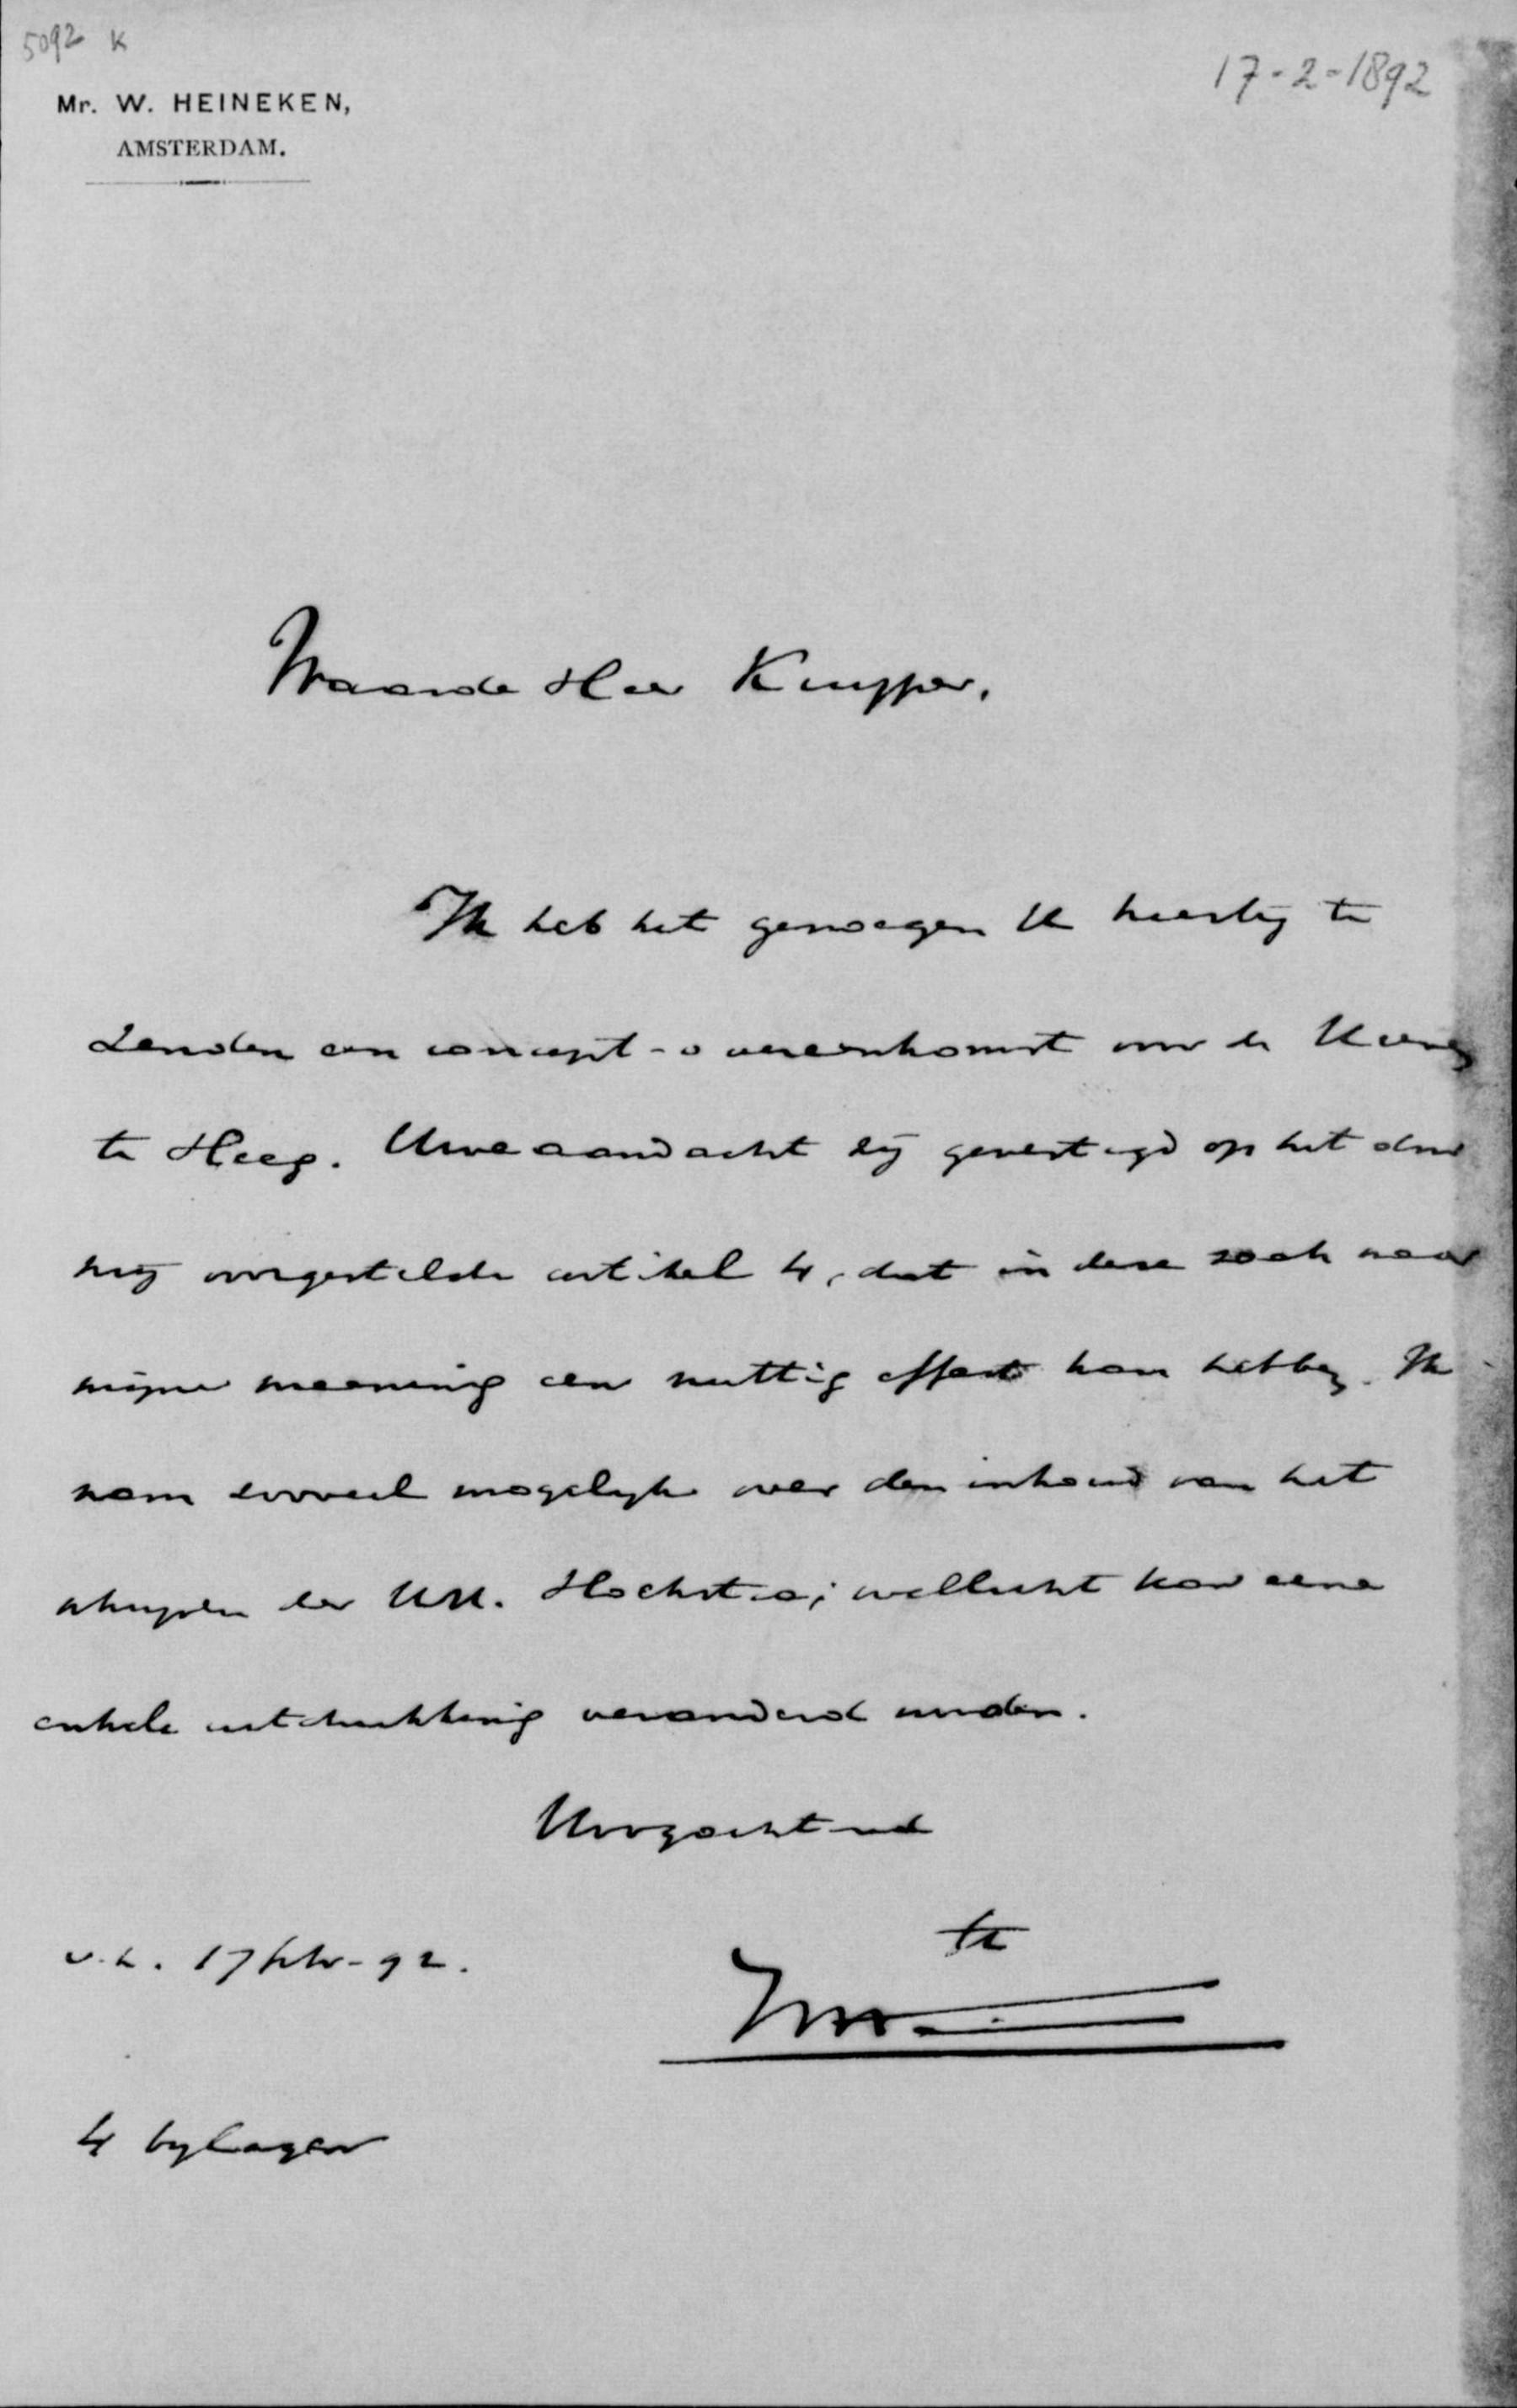 5092 K
17-2-1892
Mr. W. HEINEKEN,
AMSTERDAM.
Waarde Heer Kuyper,
Ik heb het genoegen U hierbij te
zenden een concept-overeenkomst voor de Kerk
te Heeg. Uwe aandacht zij gevestigd op het door
mij voorgestelde artikel 4, dat in deze zaak naar
mijne meening een nuttig effect kan hebben. Ik
nam zooveel mogelijk over den inhoud van het
schrijven der HH. Hoekstra; wellicht kan eene
enkele uitdrukking veranderd worden.
Hoogachtend
v.h. 17 febr-92.
4 bylagen